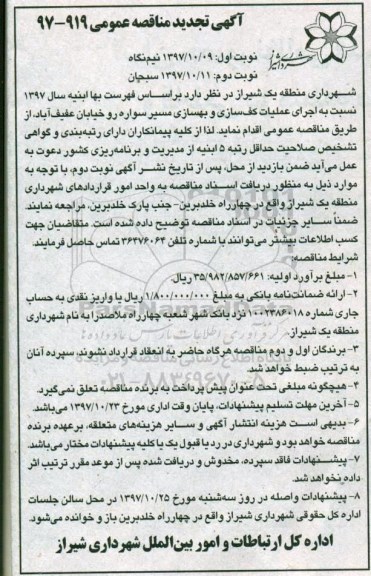 آگهی تجدید مناقصه عمومی ۹۱۹-۹۷
نوبت اول: ۱۳۹۷/۱۰/۰۹ نیم‌نگاه
نوبت دوم: ۱۳۹۷/۱۰/۱۱ سبحان
شهرداری شیراز
شهرداری منطقه یک شیراز در نظر دارد براساس فهرست بها ابنیه سال ۱۳۹۷
نسبت به اجرای عملیات کف‌سازی و بهسازی مسیر سواره رو خیابان عفیف‌آباد، از
طریق مناقصه عمومی اقدام نماید. لذا از کلیه پیمانکاران دارای رتبه‌بندی و گواهی
تشخیص صلاحیت حداقل رتبه ۵ ابنیه از مدیریت و برنامه‌ریزی کشور دعوت به
عمل می‌آید ضمن بازدید از محل، پس از تاریخ نشر آگهی نوبت دوم، با توجه به
موارد ذیل به منظور دریافت اسناد مناقصه به واحد امور قراردادهای شهرداری
منطقه یک شیراز واقع در چهارراه خلدبرین- جنب پارک خلدبرین، مراجعه نمایند.
ضمناً سایر جزئیات در اسناد مناقصه توضیح داده شده است. متقاضیان جهت
کسب اطلاعات بیشتر می‌توانند با شماره تلفن ۳۶۴۷۶۰۶۴ تماس حاصل فرمایند.
شرایط مناقصه:
۱- مبلغ برآورد اولیه: ۳۵/۹۸۲/۸۵۷/۶۶۱ ریال.
۲- ارائه ضمانت‌نامه بانکی به مبلغ ۱/۸۰۰/۰۰۰/۰۰۰ ریال یا واریز نقدی به حساب
جاری شماره ۱۰۰۲۳۸۶۰۱۸ نزد بانک شهر شعبه چهارراه ملاصدرا به نام شهرداری
منطقه یک شیراز.
۳- برندگان اول و دوم مناقصه هرگاه حاضر به انعقاد قرارداد نشوند، سپرده آنان
به ترتیب ضبط خواهد شد.
۴- هیچگونه مبلغی تحت عنوان پیش پرداخت به برنده مناقصه تعلق نمی‌گیرد.
۵- آخرین مهلت تسلیم پیشنهادات، پایان وقت اداری مورخ ۱۳۹۷/۱۰/۲۳ می‌باشد.
۶- بدیهی است هزینه انتشار آگهی و سایر هزینه‌های متعلقه، برعهده برنده
مناقصه خواهد بود و شهرداری در رد یا قبول یک یا کلیه پیشنهادات مختار می‌باشد.
۷- پیشنهادات فاقد سپرده، مخدوش و دریافت شده پس از موعد مقرر ترتیب اثر
داده نخواهد شد.
۸- پیشنهادات واصله در روز سه‌شنبه مورخ ۱۳۹۷/۱۰/۲۵ در محل سالن جلسات
اداره کل حقوقی شهرداری شیراز واقع در چهارراه خلدبرین باز و خوانده می‌شود.
اداره کل ارتباطات و امور بین‌الملل شهرداری شیراز